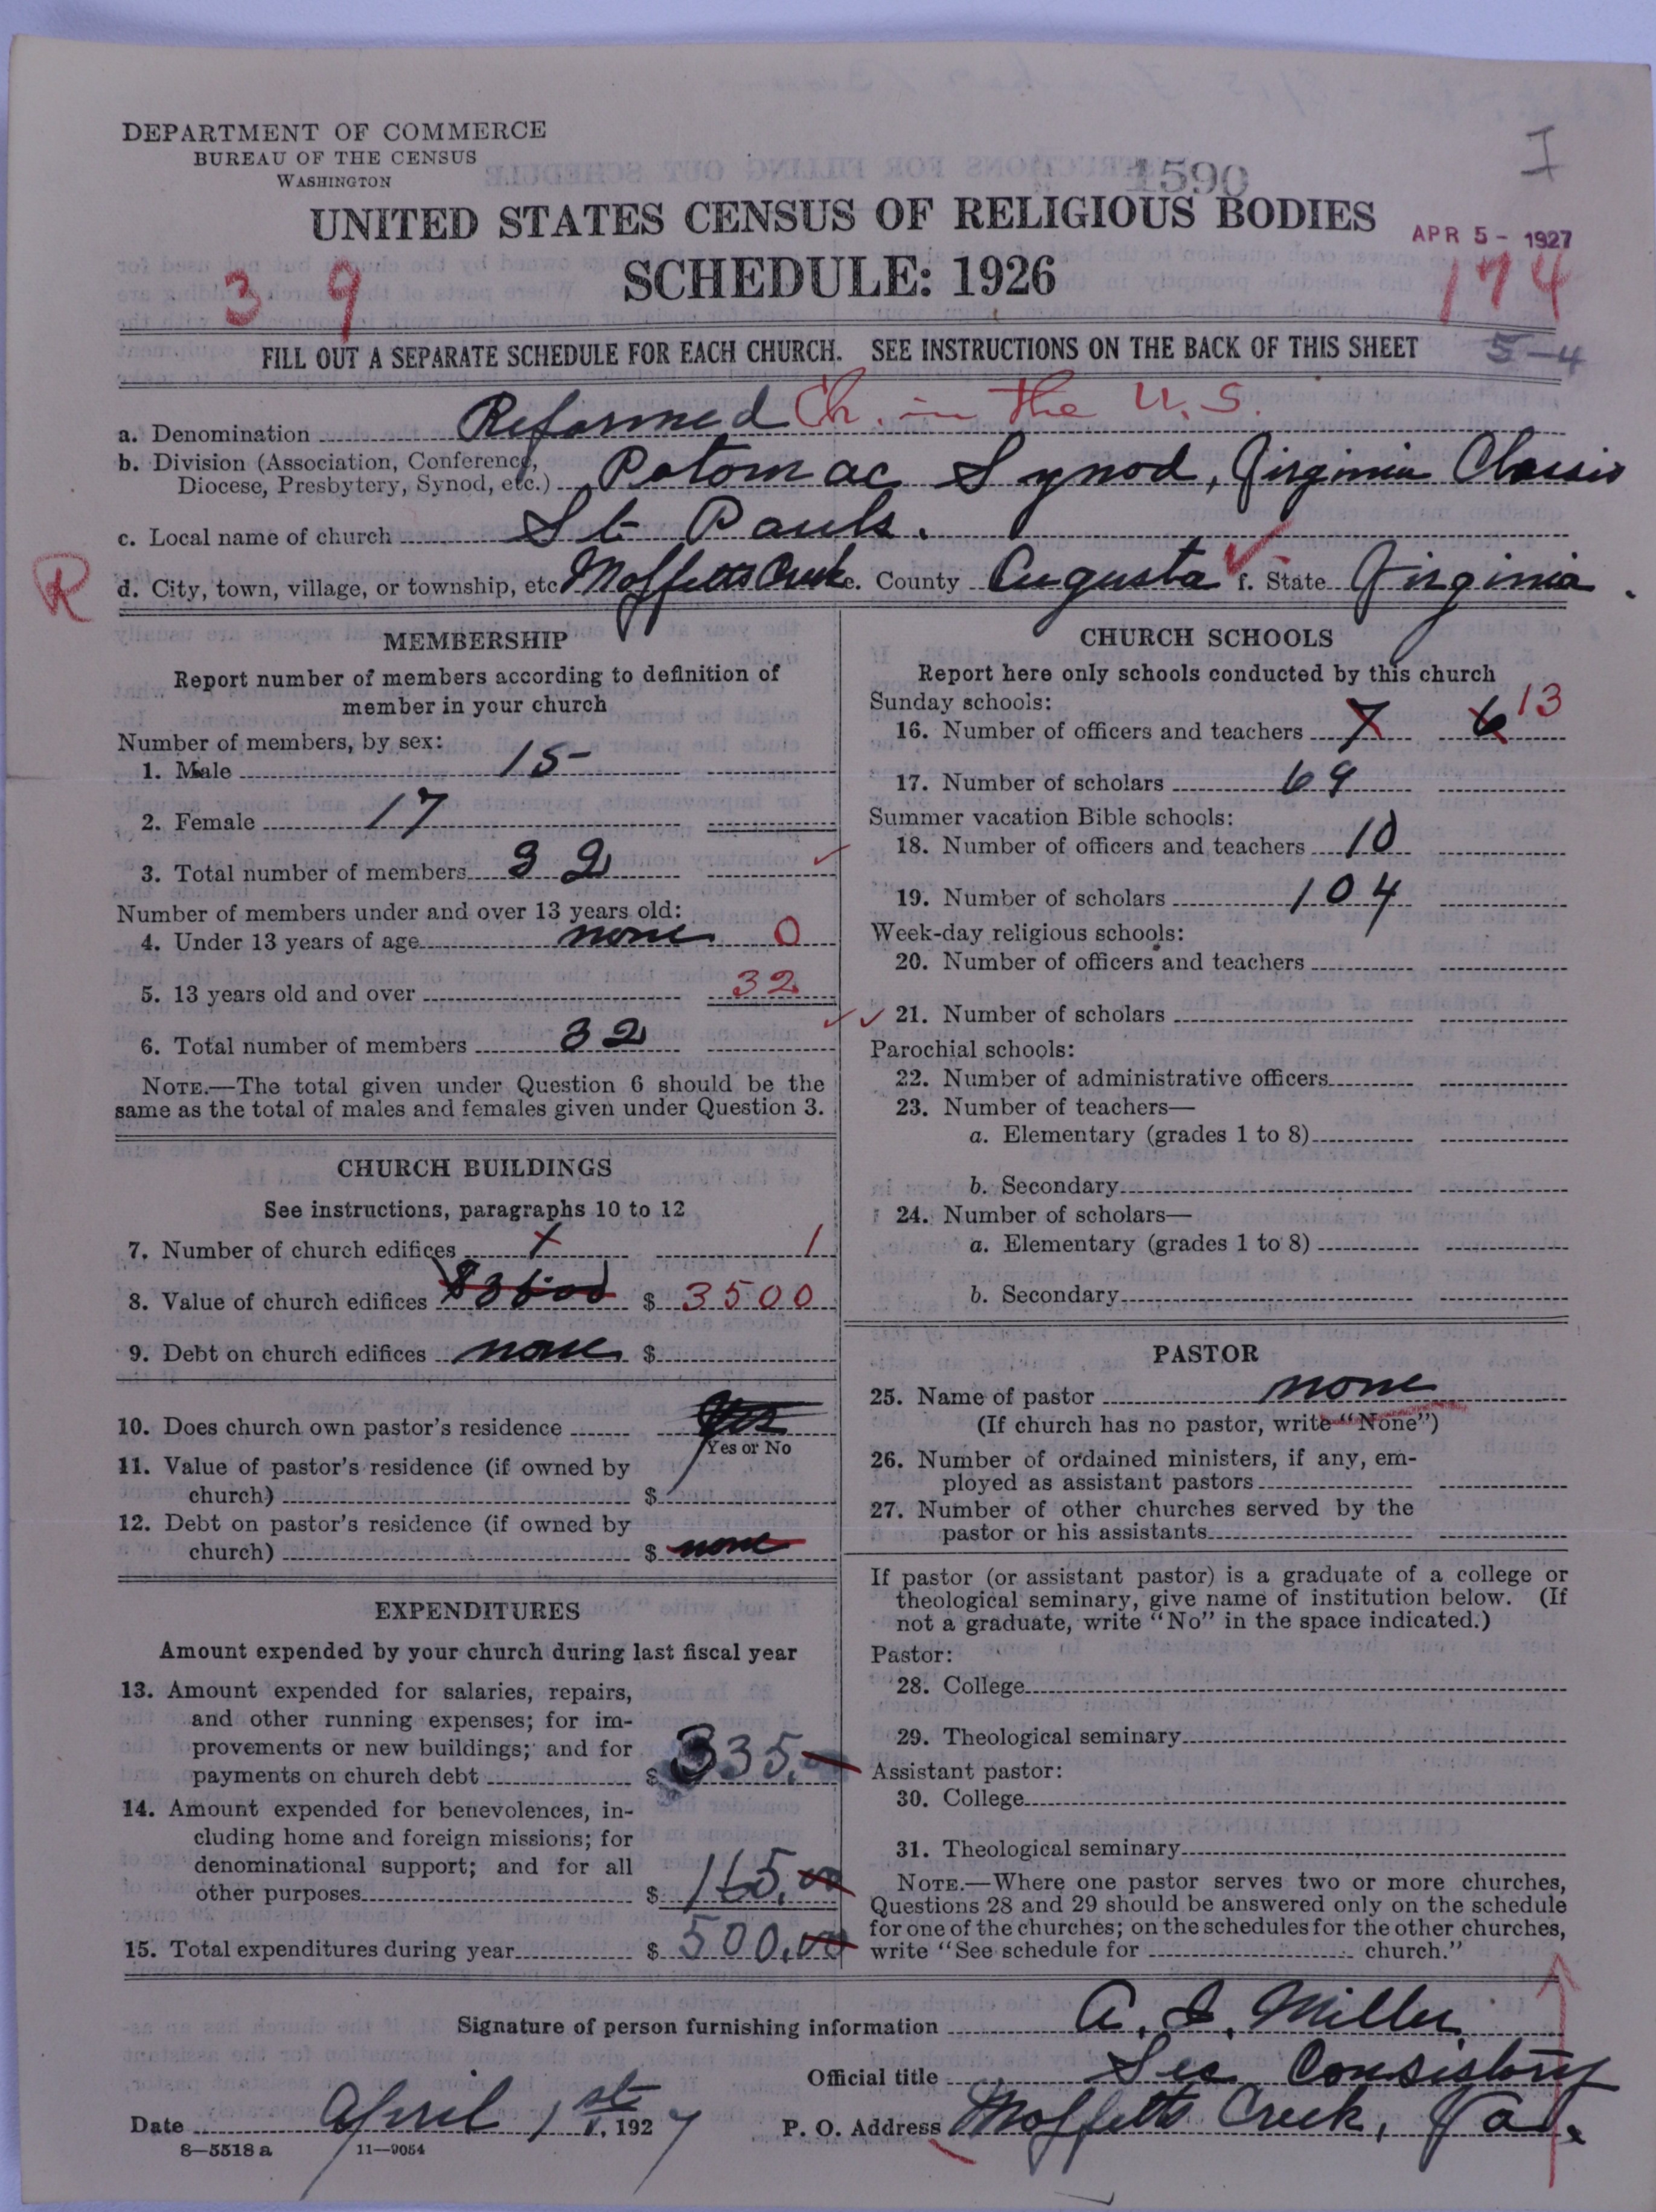 DEPARTMENT OF COMMERCE
BUREAU OF THE CENSUS
WASHINGTON
I
1590
UNITED STATES CENSUS OF RELIGIOUS BODIES
APR 5 - 1927
3 9
SCHEDULE: 1926
174
FILL OUT A SEPARATE SCHEDULE FOR EACH CHURCH. SEE INSTRUCTIONS ON THE BACK OF THIS SHEET
5-4
a. Denomination Reformed Ch. in the U.S.
b. Division (Association, Conference, Diocese, Presbytery, Synod, etc.) Potomac Synod, Virginia Classis
c. Local name of church St Pauls.
R
d. City, town, village, or township, etc Moffetts Creek e. County Augusta f. State Virginia.
MEMBERSHIP
Report number of members according to definition of
member in your church
Number of members, by sex:
1. Male 15
2. Female 17
3. Total number of members 32
Number of members under and over 13 years old:
4. Under 13 years of age none 0
5. 13 years old and over 32
6. Total number of members 32
NOTE.—The total given under Question 6 should be the
same as the total of males and females given under Question 3.
CHURCH BUILDINGS
See instructions, paragraphs 10 to 12
7. Number of church edifices 1 1
8. Value of church edifices $3500 $ 3500
9. Debt on church edifices none $
10. Does church own pastor's residence Yes
Yes or No
11. Value of pastor's residence (if owned by
church) $
12. Debt on pastor's residence (if owned by
church) $ none
EXPENDITURES
Amount expended by your church during last fiscal year
13. Amount expended for salaries, repairs,
and other running expenses; for im-
provements or new buildings; and for
payments on church debt $ 335.00
14. Amount expended for benevolences, in-
cluding home and foreign missions; for
denominational support; and for all
other purposes $ 165.00
15. Total expenditures during year $ 500.00
CHURCH SCHOOLS
Report here only schools conducted by this church
Sunday schools:
16. Number of officers and teachers 7 6 13
17. Number of scholars 69
Summer vacation Bible schools:
18. Number of officers and teachers 10
19. Number of scholars 104
Week-day religious schools:
20. Number of officers and teachers
21. Number of scholars
Parochial schools:
22. Number of administrative officers
23. Number of teachers—
a. Elementary (grades 1 to 8)
b. Secondary
24. Number of scholars—
a. Elementary (grades 1 to 8)
b. Secondary
PASTOR
25. Name of pastor none
(If church has no pastor, write "None")
26. Number of ordained ministers, if any, em-
ployed as assistant pastors
27. Number of other churches served by the
pastor or his assistants
If pastor (or assistant pastor) is a graduate of a college or
theological seminary, give name of institution below. (If
not a graduate, write "No" in the space indicated.)
Pastor:
28. College
29. Theological seminary
Assistant pastor:
30. College
31. Theological seminary
NOTE.—Where one pastor serves two or more churches,
Questions 28 and 29 should be answered only on the schedule
for one of the churches; on the schedules for the other churches,
write "See schedule for church."
Signature of person furnishing information A. S. Miller
Official title Sec Consistory
Date April 1st, 1927 P. O. Address Moffetts Creek, Va.
8—5518 a 11—9054